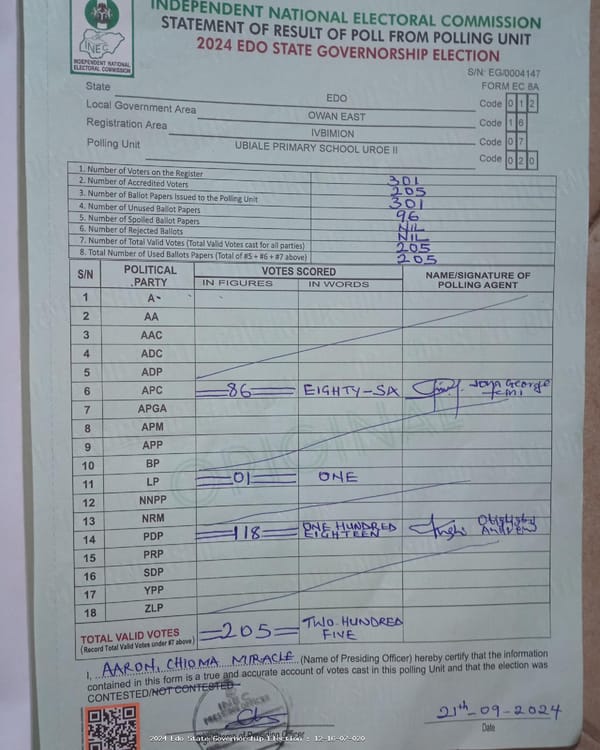 INDEPENDENT NATIONAL ELECTORAL COMMISSION
STATEMENT OF RESULT OF POLL FROM POLLING UNIT
2024 EDO STATE GOVERNORSHIP ELECTION
INEC
INDEPENDENT NATIONAL
ELECTORAL COMMISSION
S/N: EG/0004147
FORM EC 8A
State EDO Code 0 1 2
Local Government Area OWAN EAST Code 1 6
Registration Area IVBIMION Code 0 7
Polling Unit UBIALE PRIMARY SCHOOL UROE II Code 0 2 0
1. Number of Voters on the Register 301
2. Number of Accredited Voters 205
3. Number of Ballot Papers Issued to the Polling Unit 301
4. Number of Unused Ballot Papers 96
5. Number of Spoiled Ballot Papers NIL
6. Number of Rejected Ballots NIL
7. Number of Total Valid Votes (Total Valid Votes cast for all parties) 205
8. Total Number of Used Ballots Papers (Total of #5 + #6 + #7 above) 205
S/N POLITICAL .PARTY VOTES SCORED NAME/SIGNATURE OF POLLING AGENT
IN FIGURES IN WORDS
1 A
2 AA
3 AAC
4 ADC
5 ADP
6 APC 86 EIGHTY-SA George
7 APGA
8 APM
9 APP
10 BP
11 LP 01 ONE
12 NNPP
13 NRM
14 PDP 118 ONE HUNDRED EIGHTEEN Andrew
15 PRP
16 SDP
17 YPP
18 ZLP
ORIGINAL
TOTAL VALID VOTES 205 TWO HUNDRED FIVE
(Record Total Valid Votes under #7 above)
I, AARON, CHIOMA MIRACLE (Name of Presiding Officer) hereby certify that the information
contained in this form is a true and accurate account of votes cast in this polling Unit and that the election was
CONTESTED/NOT CONTESTED
Presiding Officer
21th-09-2024
Date
2024 Edo State Governorship Election : 12-16-07-020